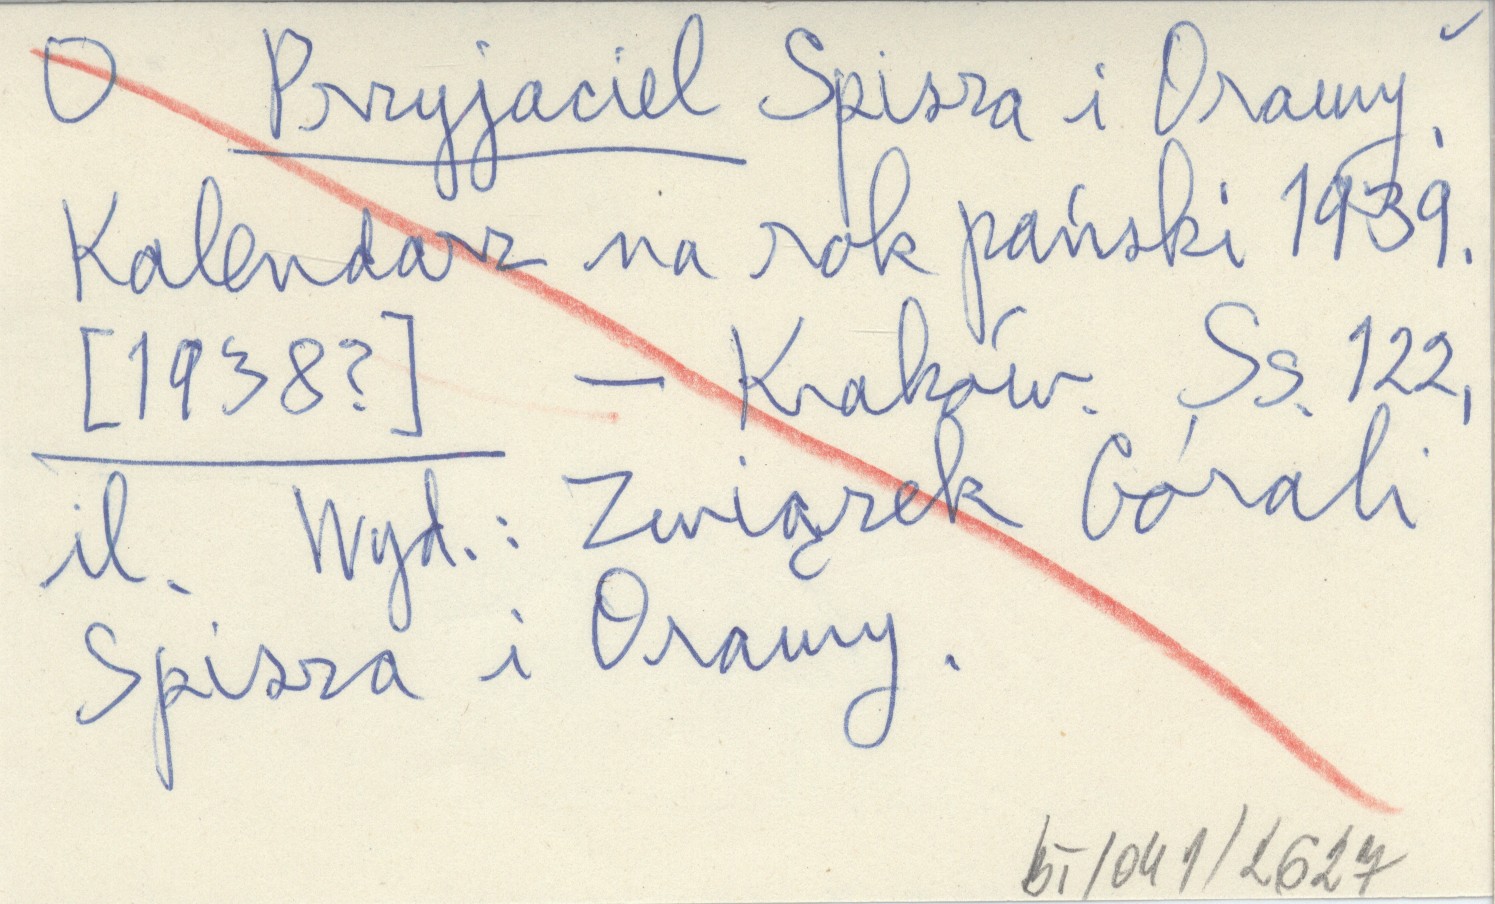 O Przyjaciel Spisza i Orawy.
Kalendarz na rok pański 1939.
[1938?] — Kraków. Ss. 122,
il. Wyd.: Związek Górali
Spisza i Orawy.
bī/041/2627